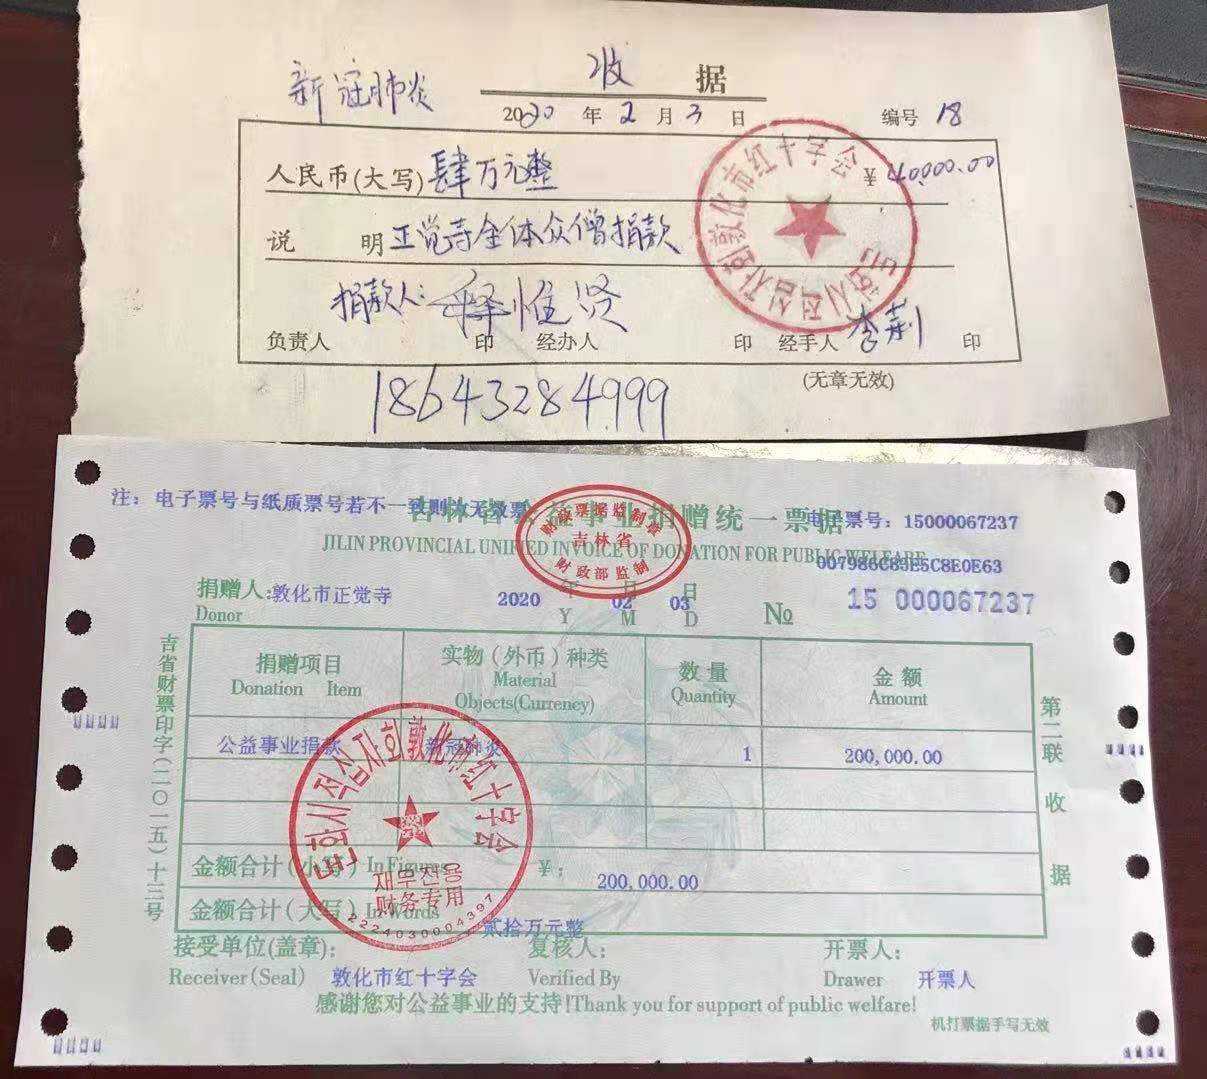 新冠肺炎
收 据
2020 年 2 月 3 日
编号 18
人民币(大写)肆万元整 ¥ 40000.00
说 明 正觉寺全体众僧捐款
捐款人:释惟贤
负责人 印 经办人 印 经手人 李荊 印
(无章无效)
18643284999
敦化市红十字会
돈화시적십자회
注：电子票号与纸质票号若不一致则为无效票
吉林省公益事业捐赠统一票据
电子票号：15000067237
JILIN PROVINCIAL UNIFIED INVOICE OF DONATION FOR PUBLIC WELFARE
财政票据监制章
吉林省
财政部监制
捐赠人:敦化市正觉寺
Donor
2020 年 02 月 03 日
Y M D
№ 15 000067237
吉省财票印字(二〇一五)十三号
捐赠项目 实物(外币)种类 数量 金额
Donation Item Material Objects(Currency) Quantity Amount
公益事业捐款 新冠肺炎 1 200,000.00
金额合计(小写) In Figures ¥: 200,000.00
金额合计(大写) In Words 贰拾万元整
돈화시적십자회 敦化市红十字会
재무전용
财务专用
2224030004397
接受单位(盖章): 复核人: 开票人:
Receiver(Seal) 敦化市红十字会 Verified By Drawer 开票人
感谢您对公益事业的支持!Thank you for support of public welfare!
机打票据手写无效
第二联 收据